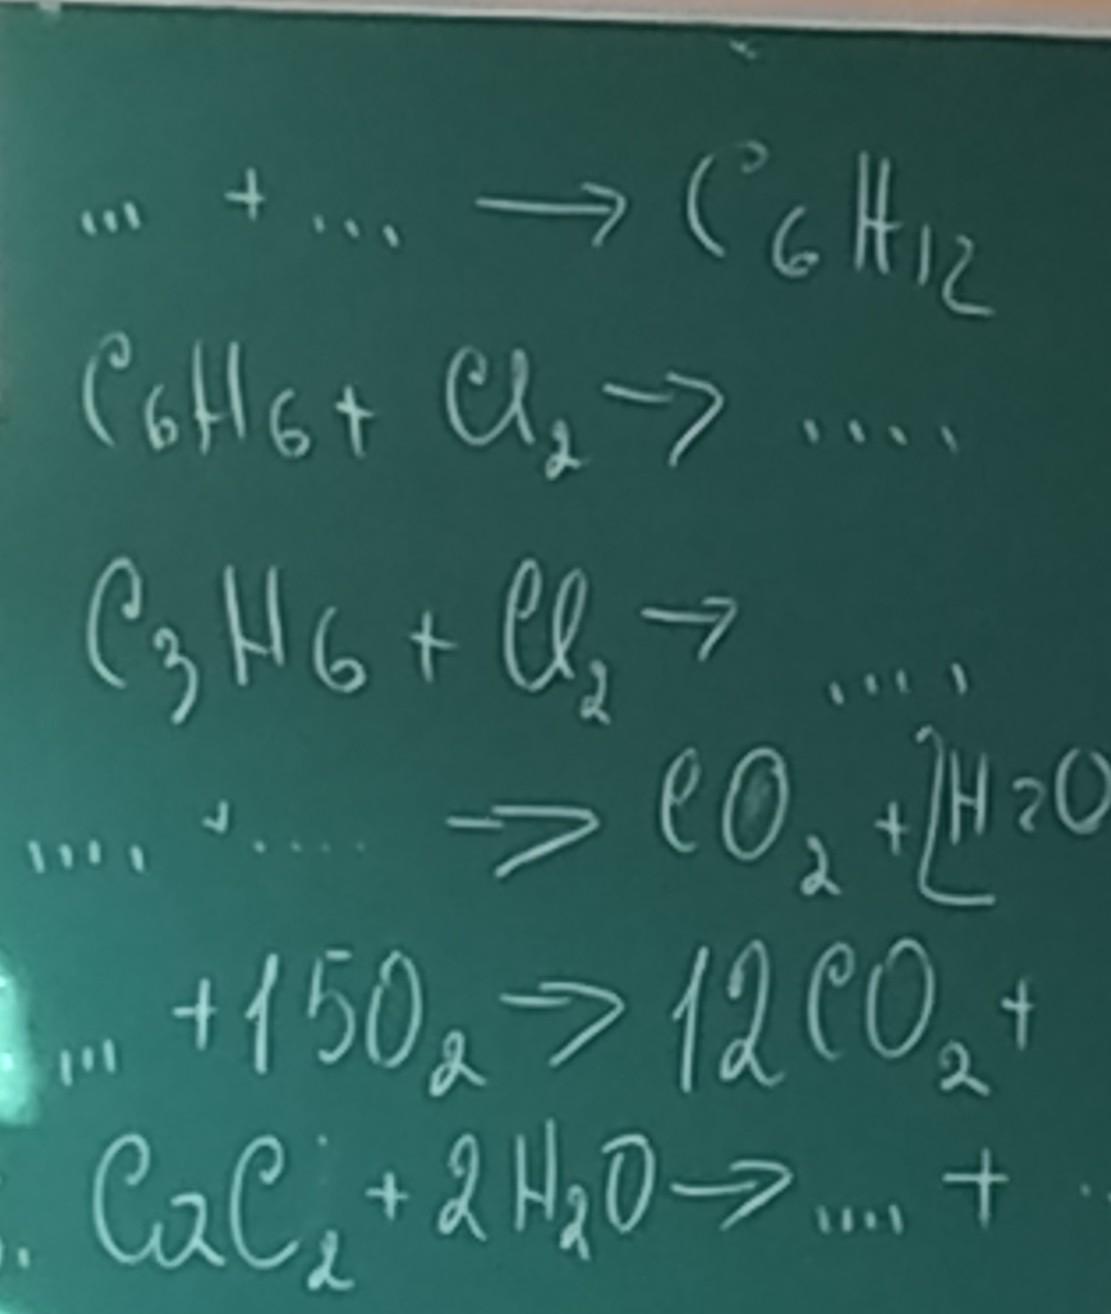 ... + ... → C₆H₁₂
C₆H₆ + Cl₂ → ....
C₃H₆ + Cl₂ → ....
.... + ..... → CO₂ + 2H₂O
... + 15O₂ → 12CO₂ +
CaC₂ + 2H₂O → .... +